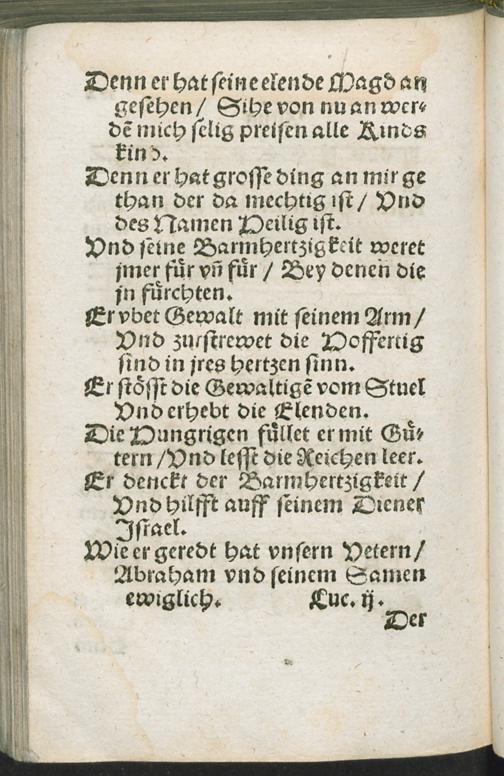 Denn er hat seine elende Magd an
gesehen / Sihe von nu an wer-
dē mich selig preisen alle Kinds
kind.
Denn er hat grosse ding an mir ge
than der da mechtig ist / Vnd
des Namen Heilig ist.
Vnd seine Barmhertzigkeit weret
jmer für vn̄ für / Bey denen die
jn fürchten.
Er vbet Gewalt mit seinem Arm /
Vnd zurstrewet die Hoffertig
sind in jres hertzen sinn.
Er stösst die Gewaltigē vom Stuel
Vnd erhebt die Elenden.
Die Hungrigen füllet er mit Gü-
tern / Vnd lesst die Reichen leer.
Er denckt der Barmhertzigkeit /
Vnd hilfft auff seinem Diener
Israel.
Wie er geredt hat vnsern Vetern /
Abraham vnd seinem Samen
ewiglich. Luc. ij.
Der